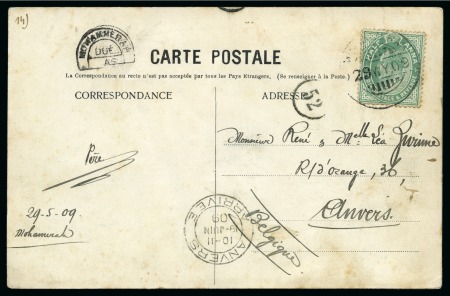 14)
MOHAMMERAH
DUE
AS
CARTE POSTALE
La Correspondance au recto n'est pas acceptée par tous les Pays Etrangers, (Se renseigner à la Poste.)
CORRESPONDANCE
ADRESSE
52
Monsieur René & Melle Léa
R/d'orange, 36,
Anvers.
Belgique
Père
29-5-09
Mohamerah
ANVERS
10-11
19 JUIN
09
ARRIVÉE